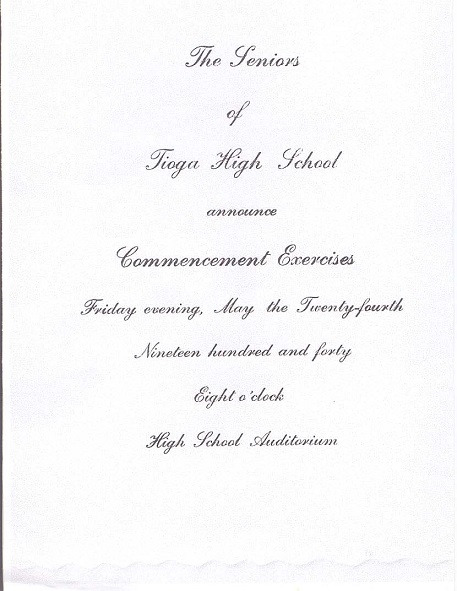 The Seniors
of
Tioga High School
announce
Commencement Exercises
Friday evening, May the Twenty-fourth
Nineteen hundred and forty
Eight o'clock
High School Auditorium